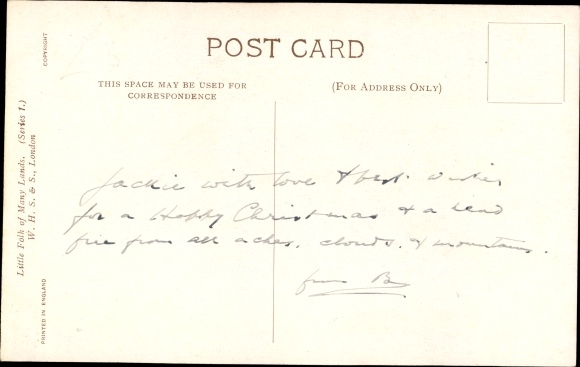 COPYRIGHT
POST CARD
THIS SPACE MAY BE USED FOR
CORRESPONDENCE
(FOR ADDRESS ONLY)
Little Folk of Many Lands. (Series 1.)
W. H. S. & S., London
PRINTED IN ENGLAND
Jackie with love & best wishes
for a Happy Christmas & a head
free from all aches, clouds, & mountains.
from B